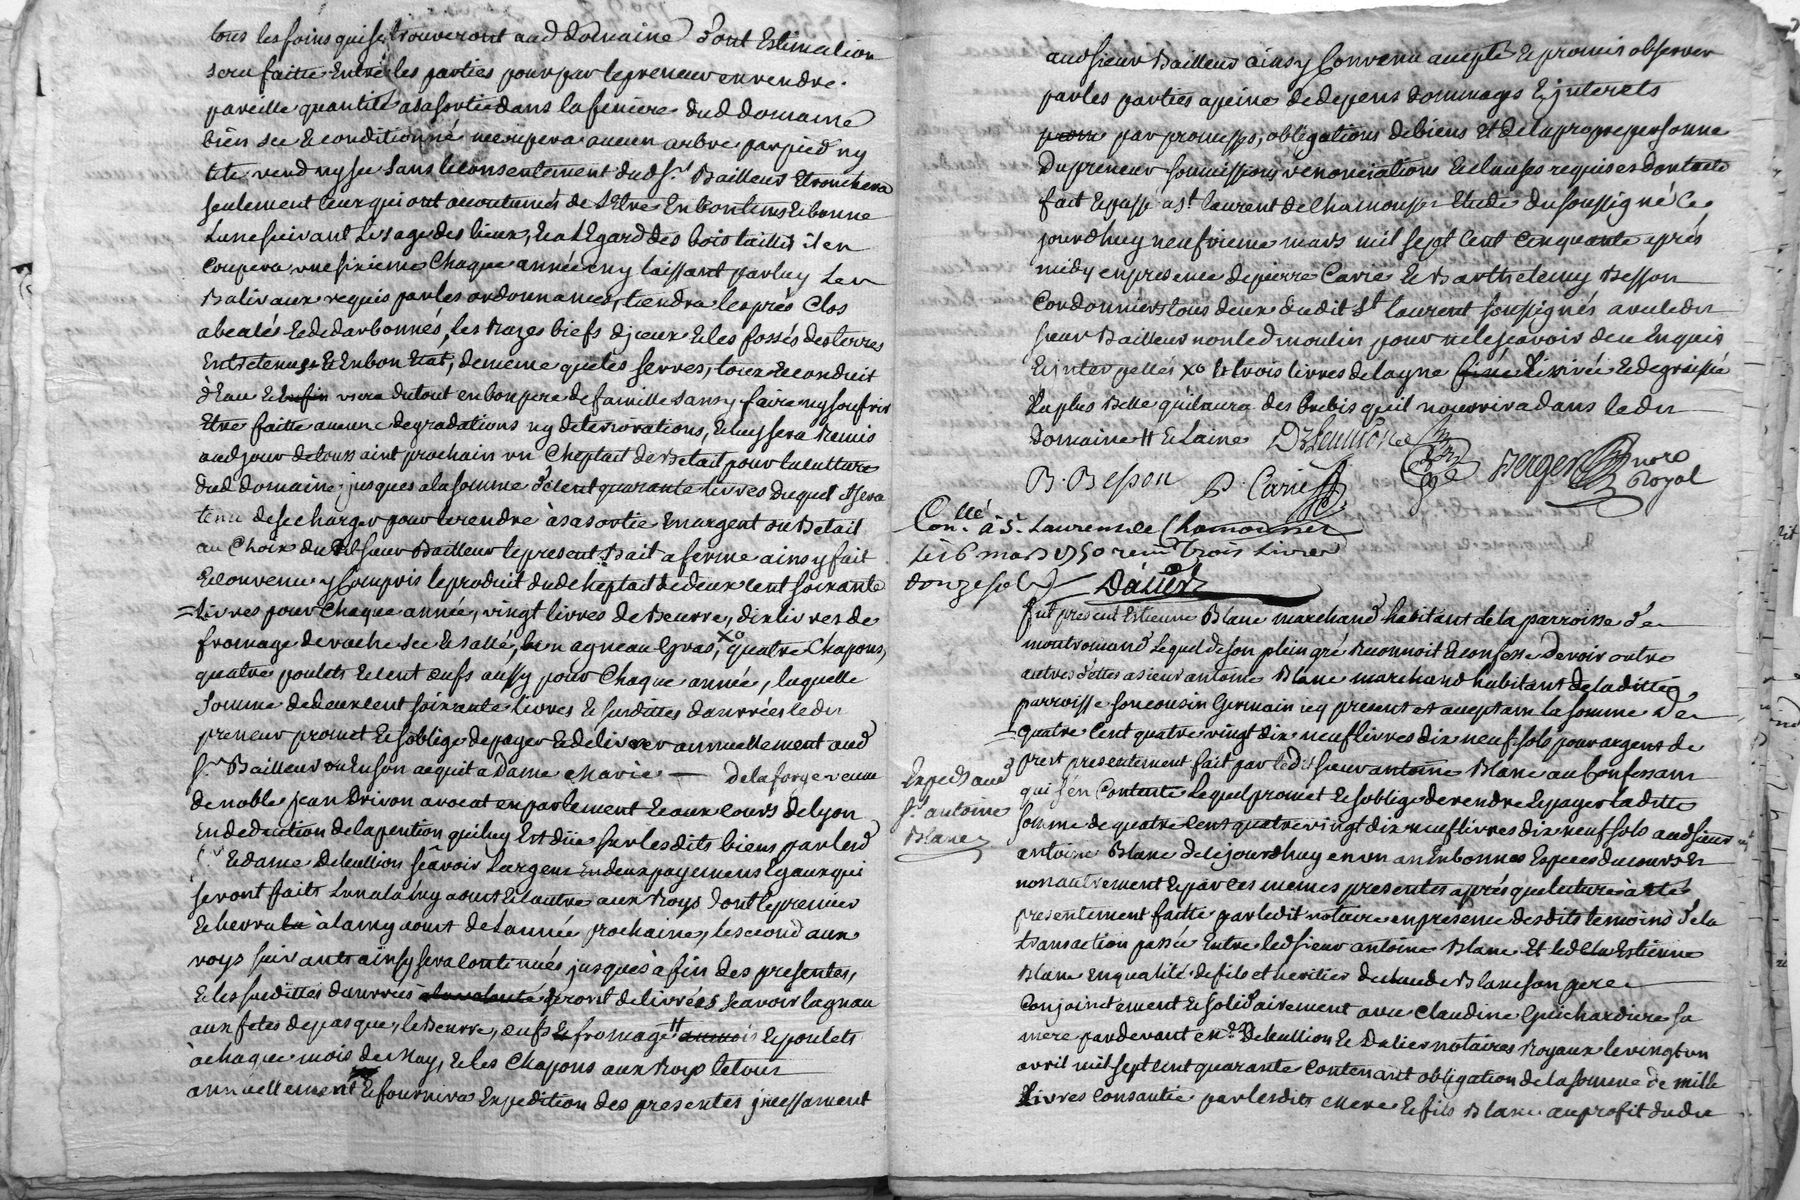 tous les foins qui se trouveront aud domaine dont Estimation
sera faitte Entre les parties pour par le preneur en rendre
pareille quantité a sa sortie dans la feniere dud domaine
bien sec & conditionné ne coupera aucun arbre par pied ny
tete verd ny sec sans le consentement dud sr. Bailleur Et tronchera
seulement ceux qui ont accoutumés de l'Etre En bon tems & bonne
Lune suivant Lusage des lieux, & a l'Egard des bois taillis il en
coupera une sixieme chaque année en y laissant par luy Les
Balivaux requis par les ordonnances, tiendra les prés Clos
abealés & dedarbonnés, les Razes biefs d'jceux & les fossés des terres
Entretenues & En bon Etat, de meme que les serves, & conduit
d'Eau & usera du tout en bon pere de famille sans y faire ny soufrir
Etre faitte aucune degradations ny deteriorations, & luy sera Remis
aud jour de toussaint prochain un Cheptail de Betail pour la culture
dud domaine jusques a la somme de Cent quarante livres duquel il sera
tenu de se charger pour le rendre à sa sortie En argent ou Betail
au Choix dudit sieur Bailleur le present Bail a ferme ainsy fait
& convenu y compris le produit dud cheptail de deux cent soixante
= Livres pour chaque année, vingt livres de Beurre, dix livres de
fromage de vache sec & salé, un agneau Gras, xo quatre Chapons,
quatre poulets & cent oeufs aussy pour Chaque année, laquelle
somme de deux cent soixante livres & susdittes danrrées led
preneur promet & s'oblige de payer & delivrer annuellement aud
sr. Bailleur ou En son acquit a Dame Marie — delaforge veuve
de noble jean Drivon avocat en parlement & aux cours de Lyon
En deduction de la pention qui luy Est düe sur lesdits biens par led
sr. & dame debullion sçavoir L'argent En deux payemens Egaux qui
seront faits L'un a la my aoust & l'autre aux Roys dont le premier
Echerra à la my aoust de l'année prochaine, le second aux
roys suivants ainsy sera continués jusques à fin des presentes,
& les susdittes danrrées seront delivrées sçavoir lagneau
aux fetes de pasque, le Beurre, oeufs & fromage " & poulets
à chaque mois de May, & les Chapons aux Roys le tout
annuellement & fournira Expedition des presentes jncessament
aud sieur Bailleur ainsy Convenu accepté & promis observer
par les parties a peine de depens dommages & jnterets
par promesses, obligations de biens et de la propre personne
du preneur soumissions renonciations & clauses requises dont acte
fait & passé a St. laurent de Chamousset Etude du soussigné Ce
jourdhuy neufvieme mars mil sept Cent Cinquante aprés
midy en presence de pierre Carie & Barthelemy Besson
Cordonniers tous deux dudit St. laurent soussignés avec led
sieur Bailleur non led moulin pour ne le sçavoir de ce Enquis
& jnterpellés xo & trois livres de layne & degraissée
La plus Belle qu'il aura des brebis qu'il nourrira dans led
domaine " & Laine
B. Besson P. Carie Berger nore Royal
Conllé. à St. Laurent de Chamousset
Le 16 mars 1750 reçu trois Livres
douze sols Dalier
fut present Estienne Blanc marchand habitant de la parroisse de
montromand Lequel de son plein gré Reconnoit & confesse Devoir outre
autres dettes a sieur antoine Blanc marchand habitant de laditte
parroisse son cousin Germain icy present et acceptant la somme De
= quatre Cent quatre vingt dix neuf livres dix neuf sols pour argent de
prest presentement fait par ledit sieur antoine Blanc au Confessant
Expedt. aud
sr. antoine
Blanc
qui s'en Contente Lequel promet & s'oblige de rendre & payer laditte
somme de quatre Cent quatre vingt dix neuf livres dix neuf sols aud sieur
antoine Blanc de ce jourdhuy en un an En bonnes Especes du cours &
non autrement & par ces memes presentes aprés que lecture a Eté
presentement faitte par ledit notaire en presence desdits temoins de la
transaction passée Entre led sieur antoine Blanc Et led Estienne
Blanc en qualité de fils et heritier de claude Blanc son pere
Conjointement & solidairement avec Claudine Guichardiere sa
mere pardevant mes. Debullion & Dalier notaires Royaux le vingt un
avril mil sept cent quarante Contenant obligation de la somme de mille
Livres Consantie par lesdits Mere & fils Blanc au profit dud